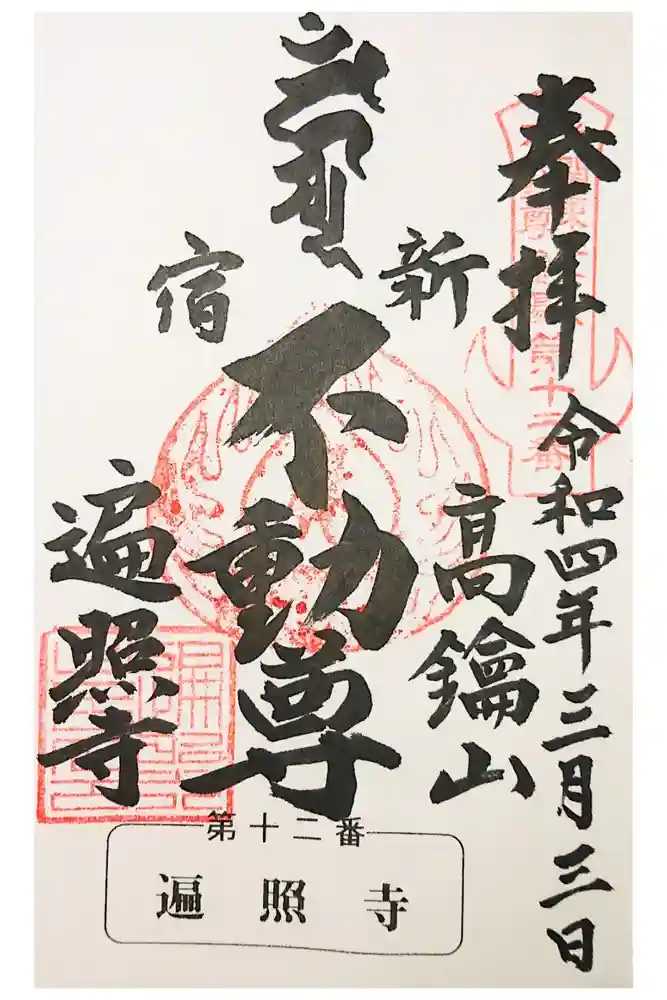 奉拝
令和四年三月三日
新宿
不動尊
高鑰山
遍照寺
第十二番
遍照寺